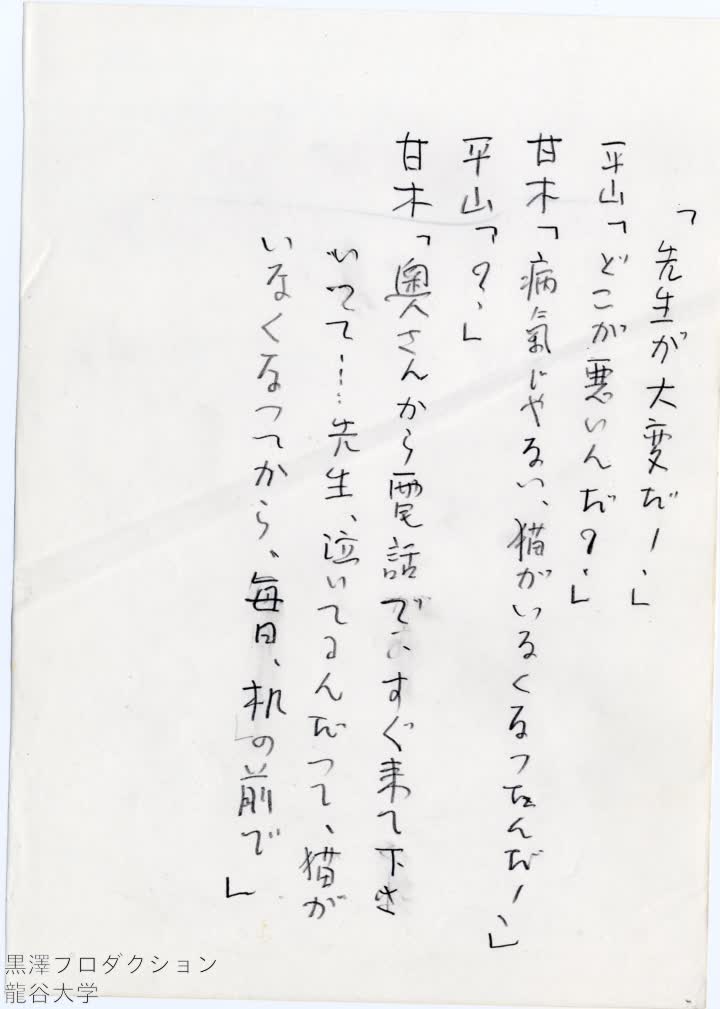 「先生が大変だ！」
平山「どこが悪いんだ？」
甘木「病氣じゃない、猫がいなくなったんだ！」
平山「？」
甘木「奥さんから電話で、すぐ来て下さ
いって…先生、泣いてるんだって、猫が
いなくなってから、毎日、机の前で」
黒澤プロダクション
龍谷大学